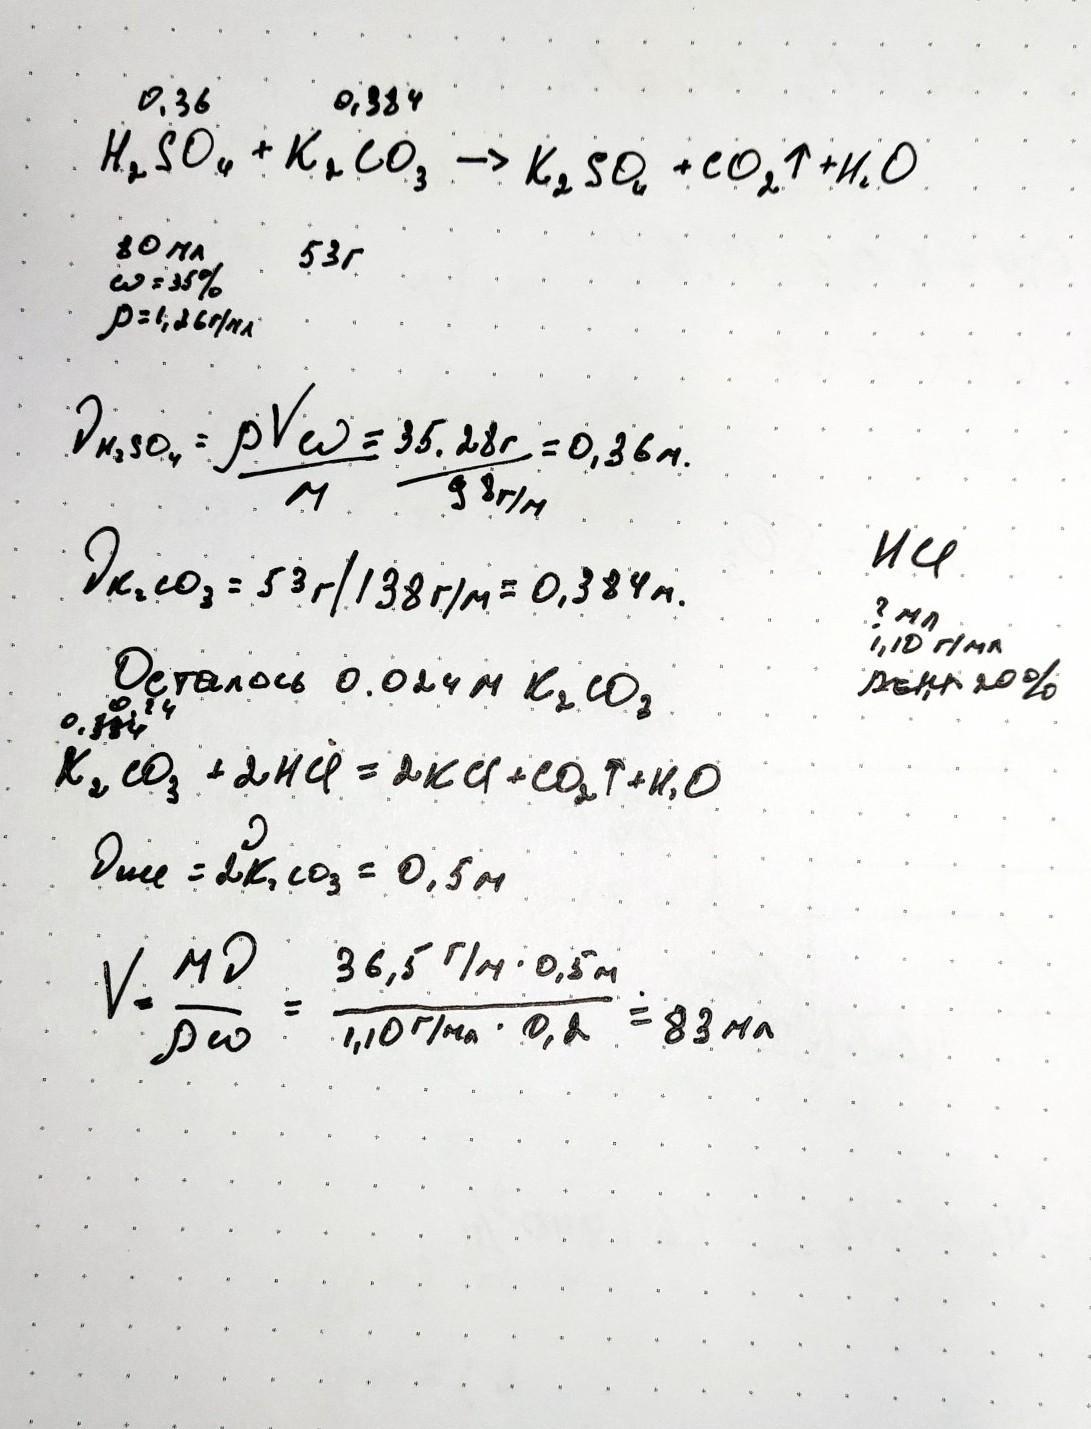 0,36 0,384
H₂SO₄ + K₂CO₃ → K₂SO₄ + CO₂↑ + H₂O
80 мл 53г
ω = 35%
ρ = 1,26г/мл
νH₂SO₄ = ρVω/M = 35.28г/98г/м = 0,36м.
νK₂CO₃ = 53г/138г/м = 0,384м.
HCl
? мл
1,10 г/мл
20%
Осталось 0.024м K₂CO₃
K₂CO₃ + 2HCl = 2KCl + CO₂↑ + H₂O
νHCl = 2νK₂CO₃ = 0,5м
V = Mν/ρω = 36,5 г/м · 0,5м/1,10г/мл · 0,2 = 83 мл